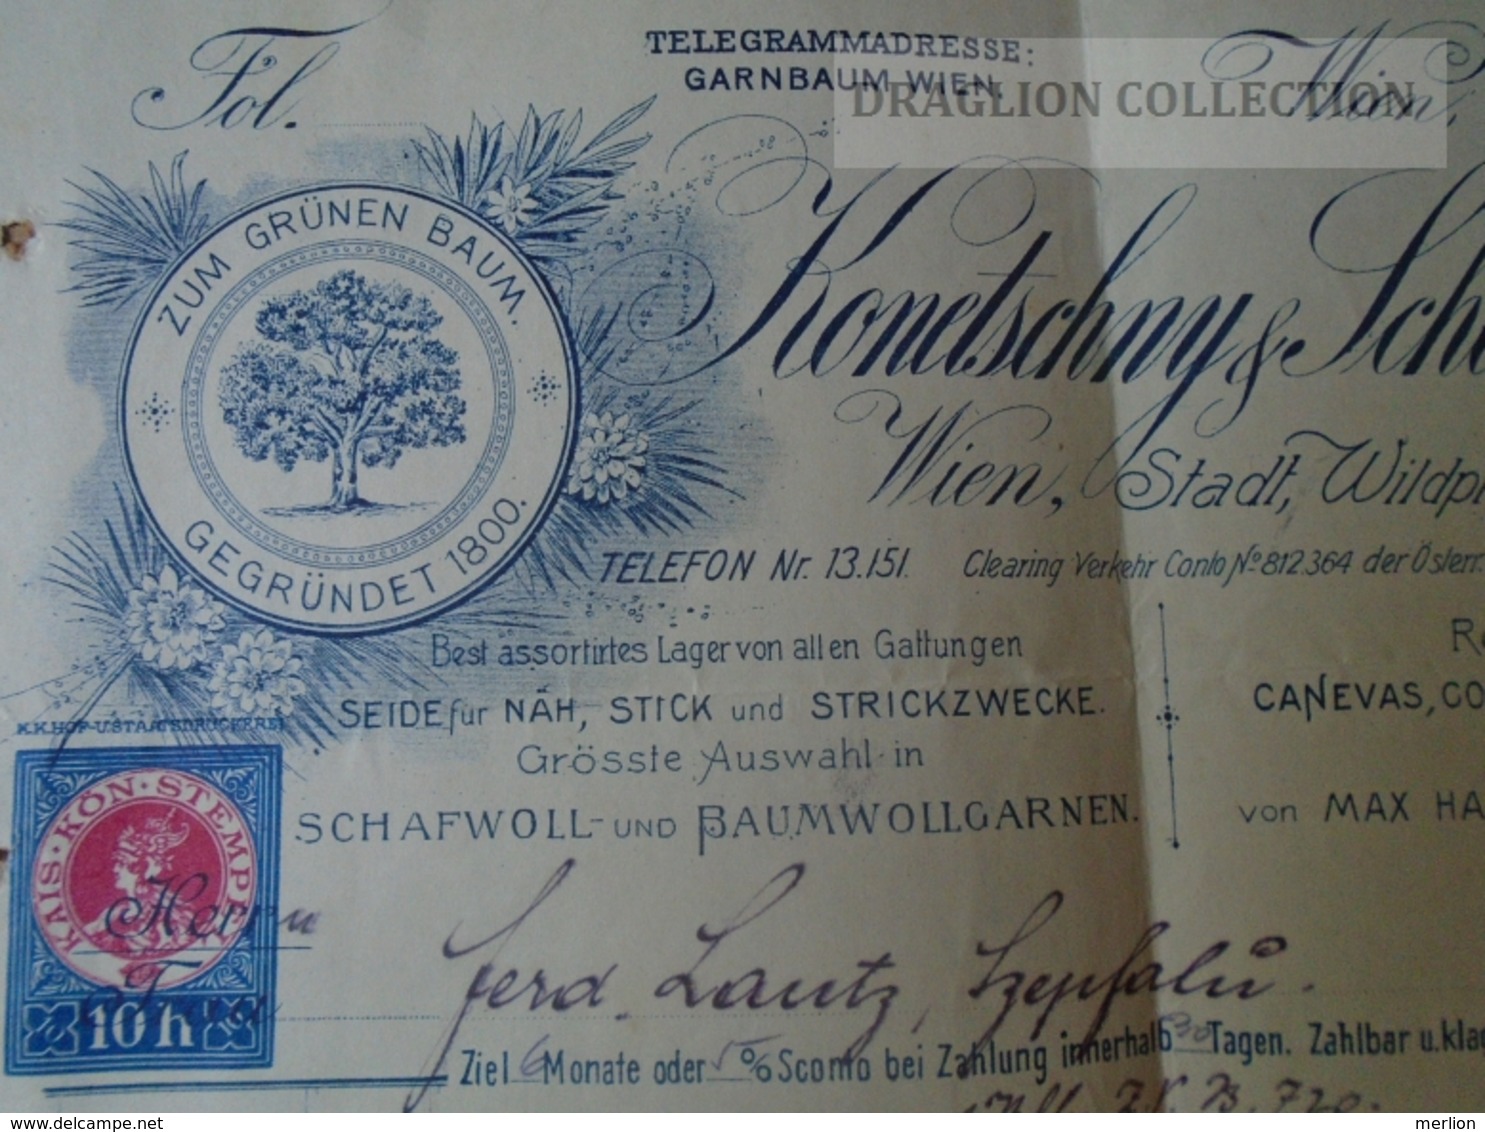 Fol.
TELEGRAMMADRESSE:
GARNBAUM WIEN.
Wien,
DRAGLION COLLECTION
ZUM GRÜNEN BAUM.
GEGRÜNDET 1800.
Konetschny & Sch
Wien, Stadt, Wildpr
TELEFON Nr. 13.151. Clearing Verkehr Conto No 812.364 der Österr.
Best assortirtes Lager von allen Gattungen
SEIDE für NÄH, STICK und STRICKZWECKE.
Grösste Auswahl in
SCHAFWOLL- UND BAUMWOLLGARNEN.
CANEVAS, CO
von MAX HA
K.K.HOF-U.STAATSDRUCKEREI
KAIS·KÖN·STEMPEL
10h
Herrn
Frau
Ferd. Lautz, Szepfalú.
Ziel 6 Monate oder 5% Sconto bei Zahlung innerhalb Tagen. Zahlbar u. klag